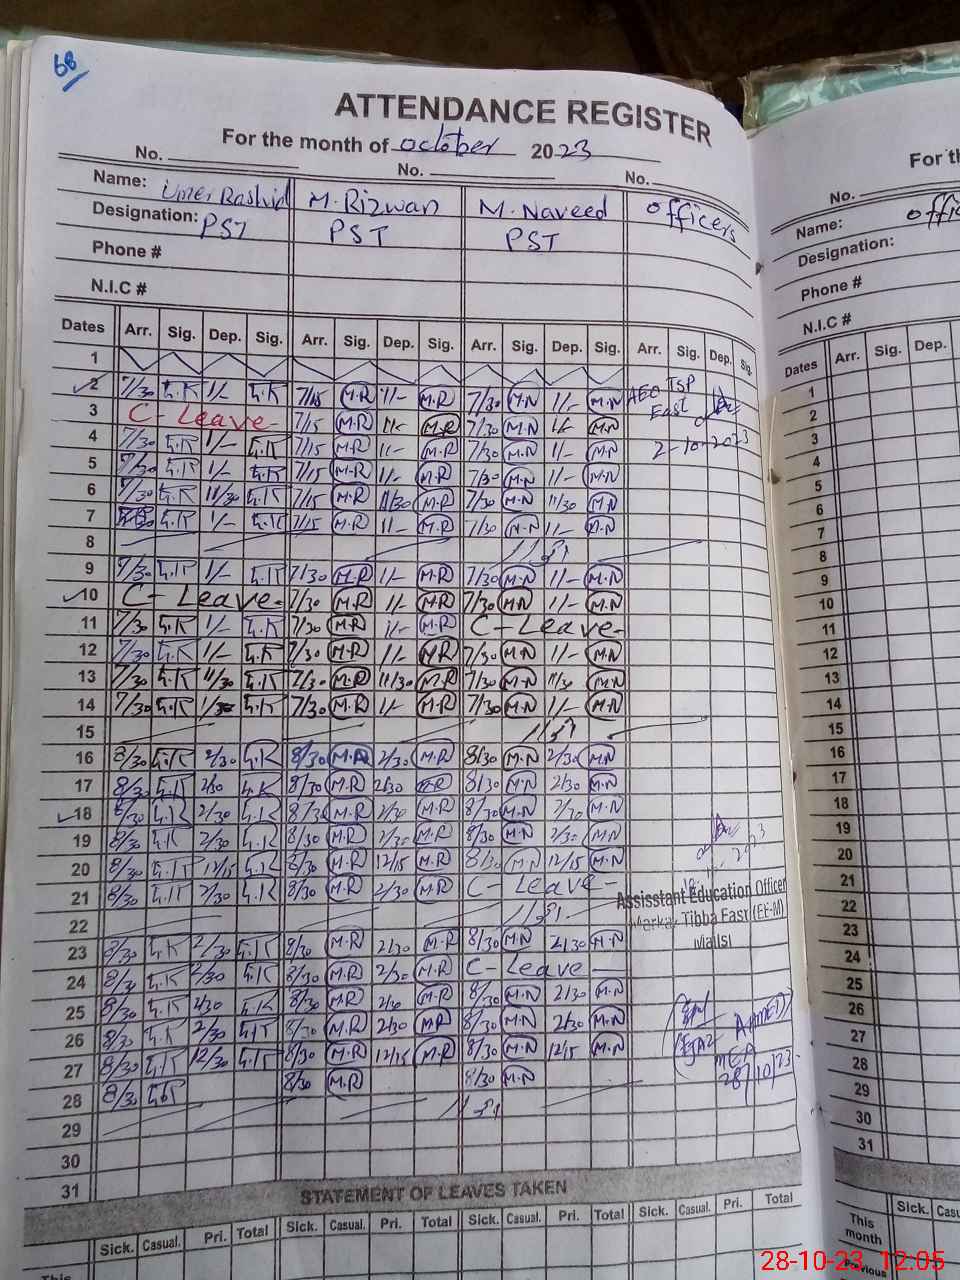 68
ATTENDANCE REGISTER
For the month of October 2023
No. No. No.
Name: Umer Rashid M. Rizwan M. Naveed Officers
Designation: PST PST PST
Phone #
N.I.C #
Dates Arr. Sig. Dep. Sig. Arr. Sig. Dep. Sig. Arr. Sig. Dep. Sig. Arr. Sig. Dep. Sig.
1
2 7/30 1/- 7/15 M.R 1/- M.R 7/30 M.N 1/- M.N AEO TSP
3 C-Leave 7/15 M.R 1/- M.R 7/30 M.N 1/- M.N East
4 7/30 1/- 7/15 M.R 1/- M.R 7/30 M.N 1/- M.N 2-10-2023
5 7/30 1/- 7/15 M.R 1/- M.R 7/30 M.N 1/- M.N
6 7/30 11/30 7/15 M.R 11/30 M.R 7/30 M.N 11/30 M.N
7 1/- 7/15 M.R 1/- M.R 7/30 M.N 1/- M.N
8
9 7/30 1/- 7/30 M.R 1/- M.R 7/30 M.N 1/- M.N
10 C-Leave 7/30 M.R 1/- M.R 7/30 M.N 1/- M.N
11 7/30 1/- 7/30 M.R 1/- M.R C-Leave
12 7/30 1/- 7/30 M.R 1/- M.R 7/30 M.N 1/- M.N
13 7/30 11/30 7/30 M.R 11/30 M.R 7/30 M.N 11/30 M.N
14 7/30 7/30 M.R 1/- M.R 7/30 M.N 1/- M.N
15
16 8/30 2/30 8/30 M.R 2/30 M.R 8/30 M.N 2/30 M.N
17 8/30 2/30 8/30 M.R 2/30 M.R 8/30 M.N 2/30 M.N
18 8/30 2/30 8/30 M.R 2/30 M.R 8/30 M.N 2/30 M.N
19 8/30 2/30 8/30 M.R 2/30 M.R 8/30 M.N 2/30 M.N
20 8/30 12/15 8/30 M.R 12/15 M.R 8/30 M.N 12/15 M.N
21 8/30 2/30 8/30 M.R 2/30 M.R C-Leave
Assisstant Education Officer
22
Markaz Tibba East (EE-M)
Mailsi
23 8/30 2/30 8/30 M.R 2/30 M.R 8/30 M.N 2/30 M.N
24 8/30 2/30 8/30 M.R 2/30 M.R C-Leave
25 8/30 2/30 8/30 M.R 2/30 M.R 8/30 M.N 2/30 M.N
26 8/30 2/30 8/30 M.R 2/30 M.R 8/30 M.N 2/30 M.N
27 8/30 12/30 8/30 M.R 12/15 M.R 8/30 M.N 12/15 M.N
28 8/30 8/30 M.R 8/30 M.N
Ahmed
MEA
28/10/23
29
30
31
STATEMENT OF LEAVES TAKEN
Sick. Casual. Pri. Total Sick. Casual. Pri. Total Sick. Casual. Pri. Total Sick. Casual. Pri. Total
This
For th
No.
Name: offic
Designation:
Phone #
N.I.C #
Dates Arr. Sig. Dep.
1
2
3
4
5
6
7
8
9
10
11
12
13
14
15
16
17
18
19
20
21
22
23
24
25
26
27
28
29
30
31
Sick. Casu
This month
Previous
28-10-23 12:05